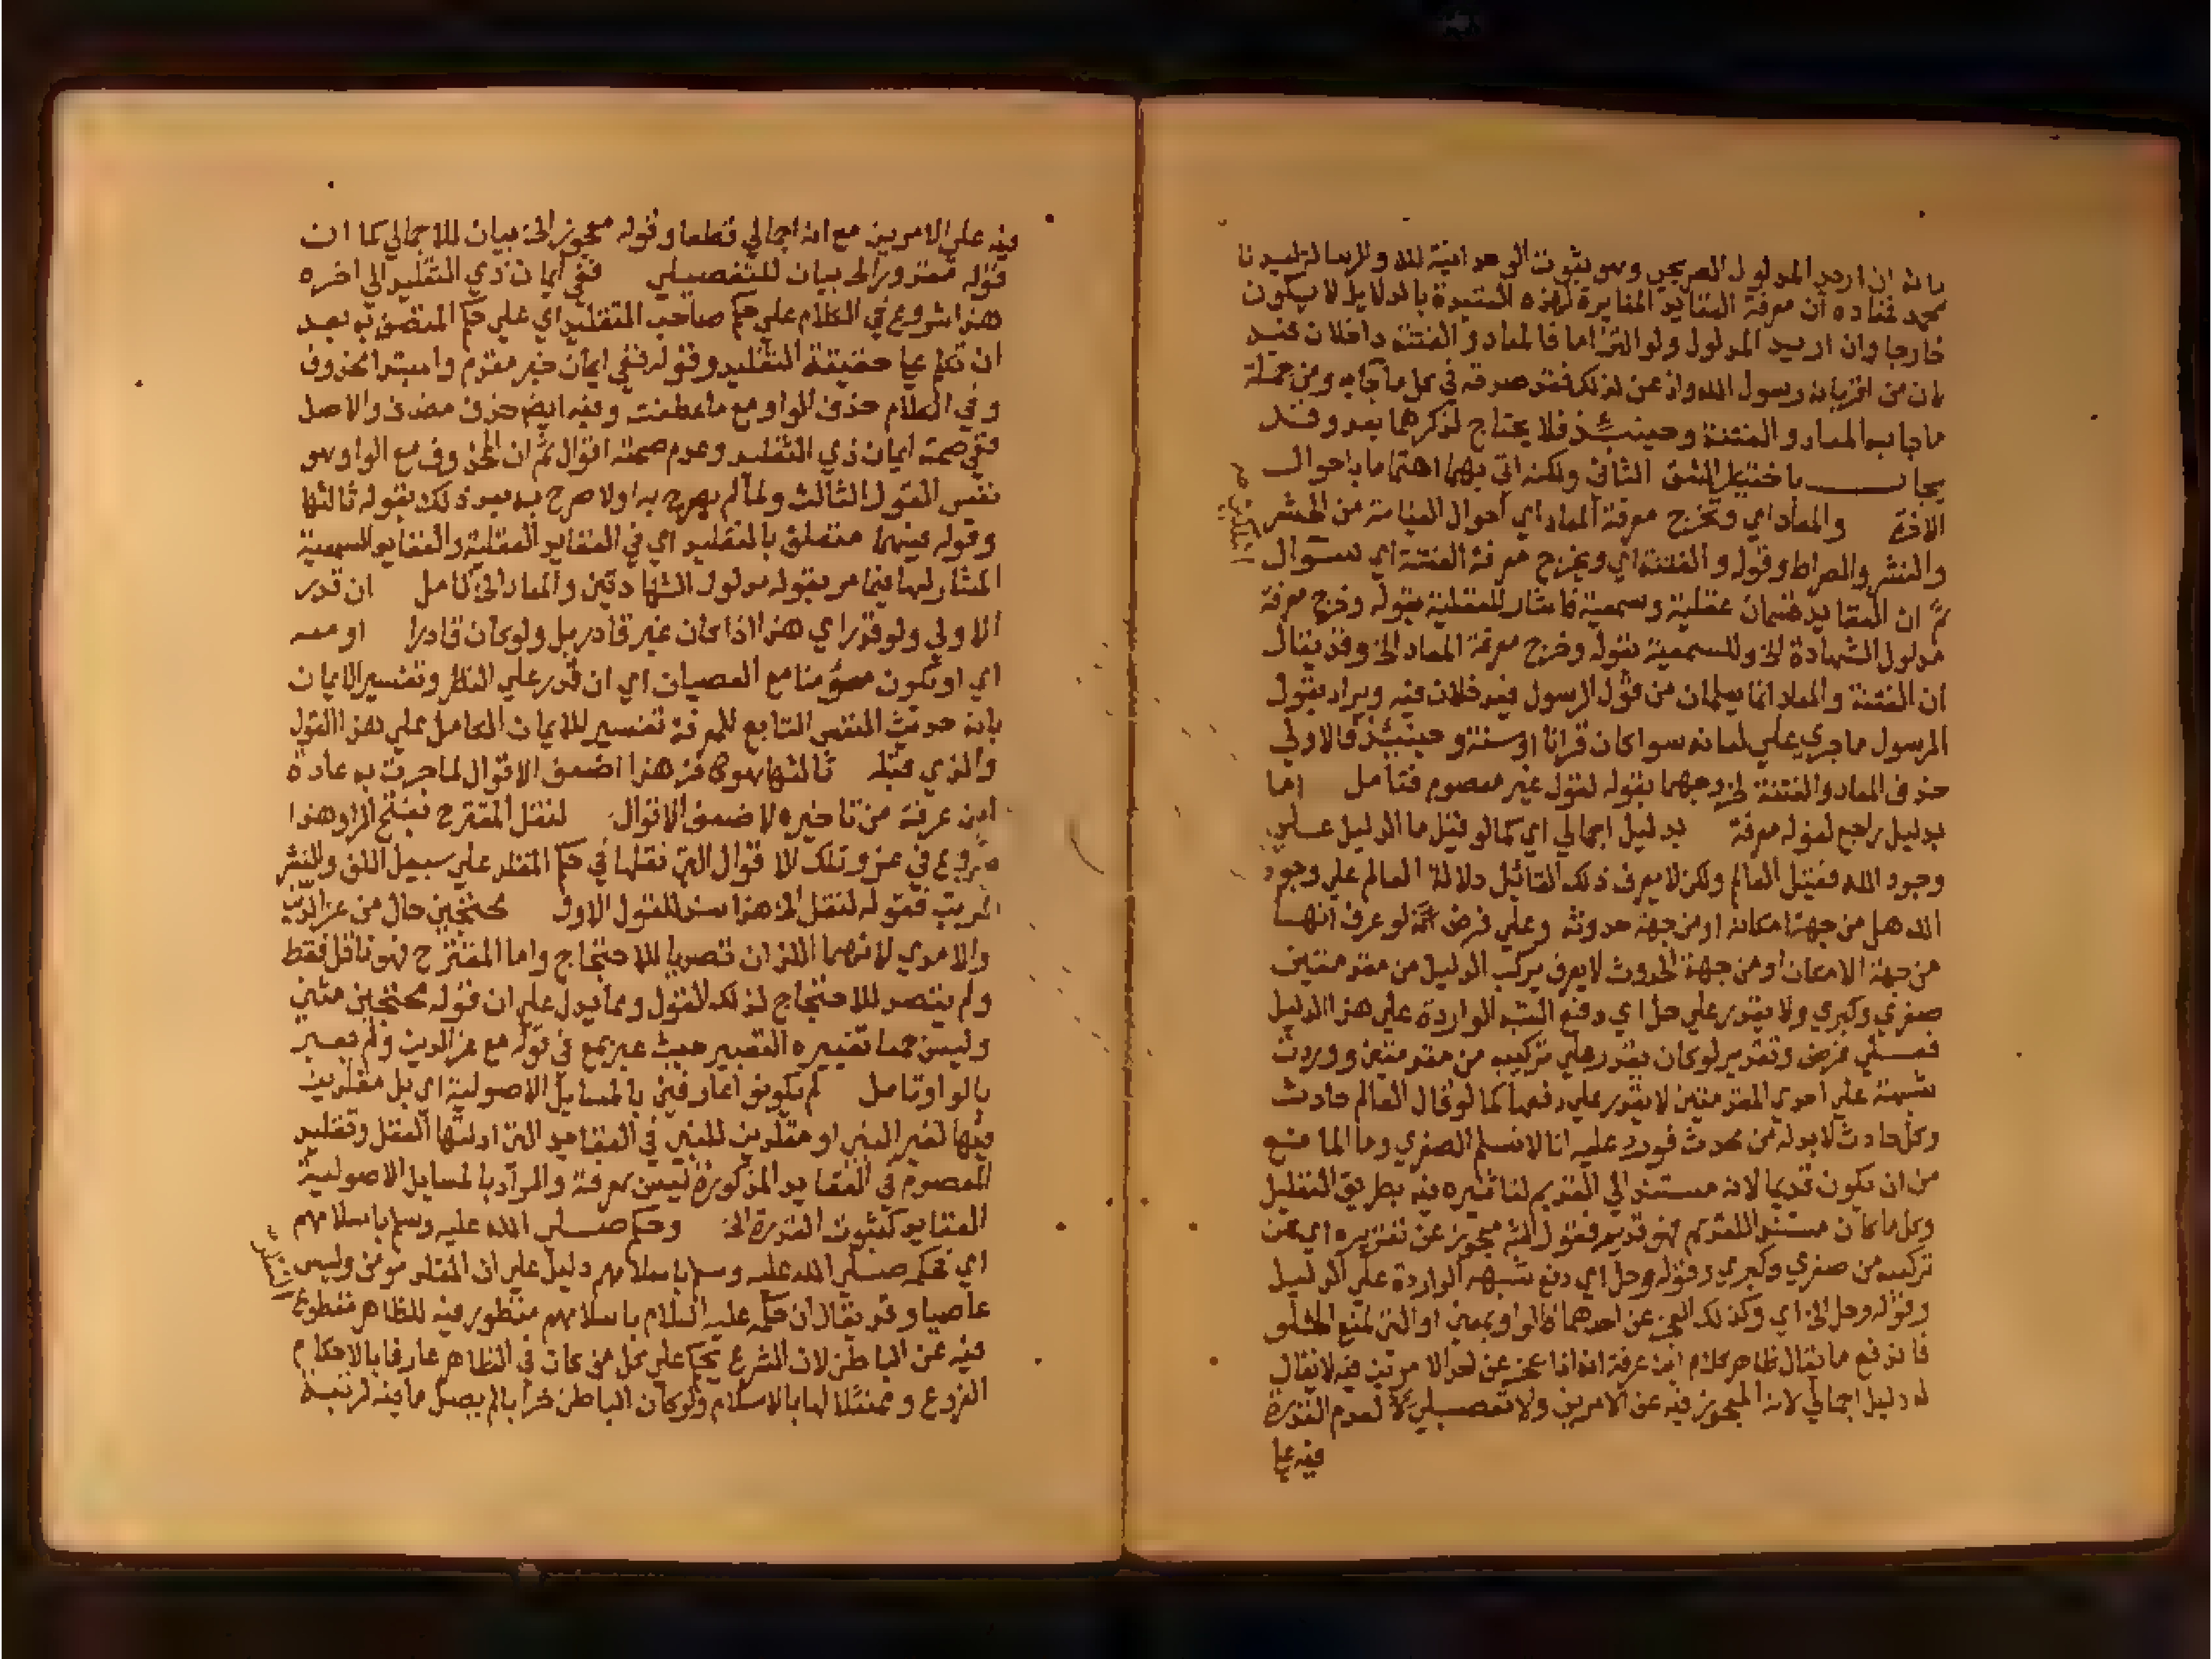 بانه ان اريد المدلول الصريحي وهو ثبوت الوحدانية لله والرسالة لسيدنا
محمد فمفاده ان معرفة العقايد المغايرة لهذه العقيدة بالدلايل لا يكون
خارجا وان اريد المدلول ولو التزاما فالمعاد والفتنة داخلان فيه
لان من اقر بانه رسول الله واذعن لذلك فقد صدقه في كل ما جا به ومن جملة
ما جا به المعاد والفتنة وحينئذ فلا يحتاج لذكرهما بعد وقد
يجاب باختيار الشق الثاني ولكنه اتي بهما اهتماما باحوال
الاخرة والمعاد اي وتخرج معرفة المعاد اي احوال القيامة من الحشر
والنشر والصراط وقوله والفتنة اي ويخرج معرفة الفتنة اي سوال
ثم ان العقايد قسمان عقلية وسمعية فاشار للعقلية بقوله وخرج معرفة
مدلول الشهادة الخ وللسمعية بقوله وخرج معرفة المعاد الخ وقد يقال
ان الفتنة والمعاد انما يعلمان من قول الرسول فيدخلان فيه ويراد بقول
الرسول ما جري علي لسانه سوا كان قرانا او سنة وحينئذ فالاولي
حذف المعاد والفتنة لخروجهما بقوله لقول غير معصوم فتامل اما
بدليل راجع لقوله معرفة بدليل اجمالي اي كما لو قيل ما الدليل علي
وجود الله فقيل العالم ولكن لا يعرف ذلك القائيل دلالة العالم علي وجود
الله هل من جهة امكانه او من جهة حدوثه وعلي فرض انه لو عرف انها
من جهة الامكان او من جهة الحدوث لا يعرف يركب الدليل من مقدمتين
صغري وكبري ولا يقدر علي حل اي دفع الشبه الواردة علي هذا الدليل
فعلي فرض وتقدير لو كان يقدر علي تركيبه من مقدمتين ووردت
شبهة علي احدي المقدمتين لا يقدر علي دفعها كما لو قال العالم حادث
وكل حادث لا بد له من محدث فورد عليه انا لا نسلم الصغري وما المانع
من ان يكون قديما لانه مستند الي القديم لتاثيره فيه بطريق التعليل
وكل ما كان مستند للقديم فهو قديم فقول الشه معجوز عن تقريره اي عن
تركيبه من صغري وكبري وقوله وحل اي دفع شبهه الواردة علي الدليل
وقوله وحل الخ اي وكذلك العجز عن احدهما فالواو بمعني او التي لمنع الخلو
فاندفع ما يقال ظاهر كلام ابن عرفة انه اذا عجز عن احد الامرين فيه لا يقال
له دليل اجمالي لانه المعجوز فيه عن الامرين ولا تفصيلي لعدم القدرة
فيه علي
فيه علي الامرين مع انه اجمالي قطعا وقوله معجوز الخ بيان للاجمالي كما ان
قوله مقدور الخ بيان للتفصيلي ففي ايمان ذي التقليد الي اخره
هذا شروع في الكلام علي حكم صاحب التقليد اي علي حكم المتصف به بعد
ان تكلم علي حقيقة التقليد وقوله ففي ايمان خبر مقدم والمبتدا محذوف
وفي الكلام حذف الواو مع ما عطفت وفيه ايض حذف مضاف والاصل
ففي صحة ايمان ذي التقليد وعدم صحته اقوال ثم ان المحذوف مع الواو هو
نفس القول الثالث ولما لم يصرح به اولا صرح به بعد ذلك بقوله ثالثها
وقوله فيهما متعلق بالتقليد اي في العقايد العقلية والعقايد السمعية
المشار لهما فيما مر بقوله مدلول الشهادتين والمعاد الخ كامل ان قدر
الاولي ولو قدر اي هذا اذا كان غير قادر بل ولو كان قادرا او معه
اي او يكون مؤمنا مع العصيان اي ان قدر علي النظر وتفسير الايمان
بانه حديث النفس التابع للمعرفة تفسير للايمان الكامل علي هذا القول
والذي قبله ثالثها هو كافر هذا اضعف الاقوال لما جرت به عادة
ابن عرفة من تاخيره لاضعف الاقوال لنقل المقترح بفتح الرا وهذا
شروع في عزو تلك الاقوال التي نقلها في حكم المقلد علي سبيل اللف والنشر
المرتب فقوله لنقل الخ هذا سند للقول الاول محتجين حال من عز الدين
والامدي لانهما اللذان تصديا للاحتجاج واما المقترح فهو ناقل فقط
ولم يتصد للاحتجاج لذلك القول ومما يدل علي ان قوله محتجين مثني
وليس جمعا تغييره التعبير حيث عبر بمع في قوله مع عز الدين ولم يعبر
بالواو تامل لم يكونوا عارفين بالمسايل الاصولية اي بل مقلدين
فيها لغير النبي او مقلدين للنبي في العقايد التي ادلتها العقل وتقليد
المعصوم في العقايد المذكورة ليس بمعرفة والمراد بالمسايل الاصولية
العقايد كثبوت القدرة الخ وحكم صلي الله عليه وسلم باسلامهم
اي فحكمه صلي الله عليه وسلم باسلامهم دليل علي ان المقلد مومن وليس
عاصيا وقد يقال ان حكمه عليه السلام باسلامهم منظور فيه للظاهر مقطوع
فيه عن الباطن لان الشرع يحكم علي كل من كان في الظاهر عارفا بالاحكام
الفروع وممتثلا لها بالاسلام ولو كان الباطن خرابا لم يصل ما فيه لرتبة